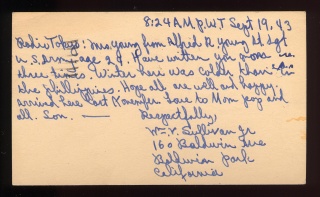 8:24 AM P.W.T Sept 19, 43
Radio Tokyo: Mrs. Young from Alfred R Young St. Sgt
U.S. Army age 24. Have written you more
three times. Winter here was colder than in
the phillippines. Hope all are well and happy.
arrived here last November Love to Mom pop and
all. Son. —
Respectfully,
Wm. V. Sullivan Jr
160 Baldwin Ave
Baldwin Park
California